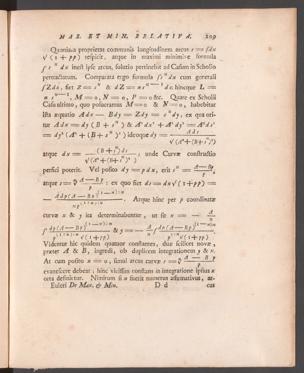 MAX. ET MIN. RELATIVÆ. 209
Quoniam proprietas communis longitudinem arcus s = ∫dx
√(1+pp) respicit, atque in maximi minimive formula
∫s^n dx inest ipse arcus, solutio pertinebit ad Casum in Scholio
pertractatum. Comparata ergo formula ∫s^n dx cum generali
∫Z dx, fiet Z = s^n & dZ = n s^{n-1} ds: hincque L =
n s^{n-1}, M = 0, N = 0, P = 0 &c. Quare ex Scholii
Casu ultimo, quo posueramus M = 0 & N = 0, habebitur
ista æquatio A dx — B dy = Z dy = s^n dy, ex qua oritur
A dx = dy (B + s^n) & A² dx² + A² dy² = A² ds²
= dy² (A² + (B + s^n)²) ideoque dy = A ds / √(A² + (B + s^n)²)
atque dx = (B + s^n) ds / √(A² + (B + s^n)²); unde Curvæ constructio
perfici poterit. Vel posito dy = p dx, erit s^n = (A — Bp) / p,
atque s =
: ex quo fiet ds = dx √(1+pp) =
. Atque hinc per p coordinatæ
curvæ x & y ita determinabuntur, ut sit x = — A/n
& y = — A/n
Videntur hic quidem quatuor constantes, duæ scilicet novæ,
præter A & B, ingredi, ob duplicem integrationem y & x.
At cum posito x = 0, simul arcus curvæ s =
evanescere debeat; hinc viciissim constans in integratione ipsius x
orta definietur. Nimirum si n fuerit numerus affirmativus,
Euleri De Max. & Min. D d cus